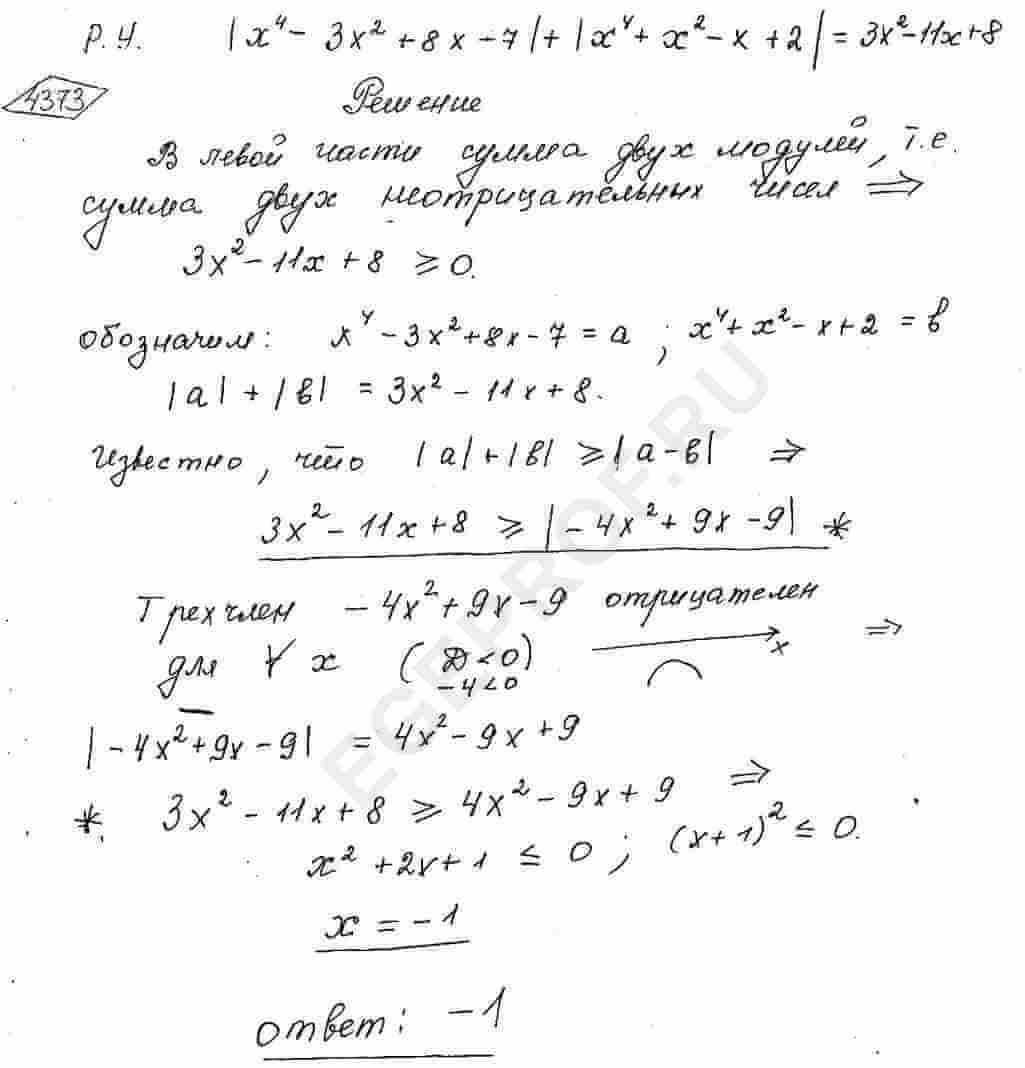 Р.У. |x⁴ - 3x² + 8x - 7| + |x⁴ + x² - x + 2| = 3x² - 11x + 8
4373
Решение
В левой части сумма двух модулей, т.е.
сумма двух неотрицательных чисел ⇒
3x² - 11x + 8 ≥ 0.
обозначим: x⁴ - 3x² + 8x - 7 = a ; x⁴ + x² - x + 2 = в
|a| + |в| = 3x² - 11x + 8.
известно, что |a| + |в| ≥ |a - в| ⇒
3x² - 11x + 8 ≥ |-4x² + 9x - 9| *
Трехчлен -4x² + 9x - 9 отрицателен
для ∀ x (D < 0) x ⇒
-4 < 0
|-4x² + 9x - 9| = 4x² - 9x + 9
*. 3x² - 11x + 8 ≥ 4x² - 9x + 9 ⇒
x² + 2x + 1 ≤ 0 ; (x + 1)² ≤ 0.
x = -1
ответ: -1
EGEPROF.RU